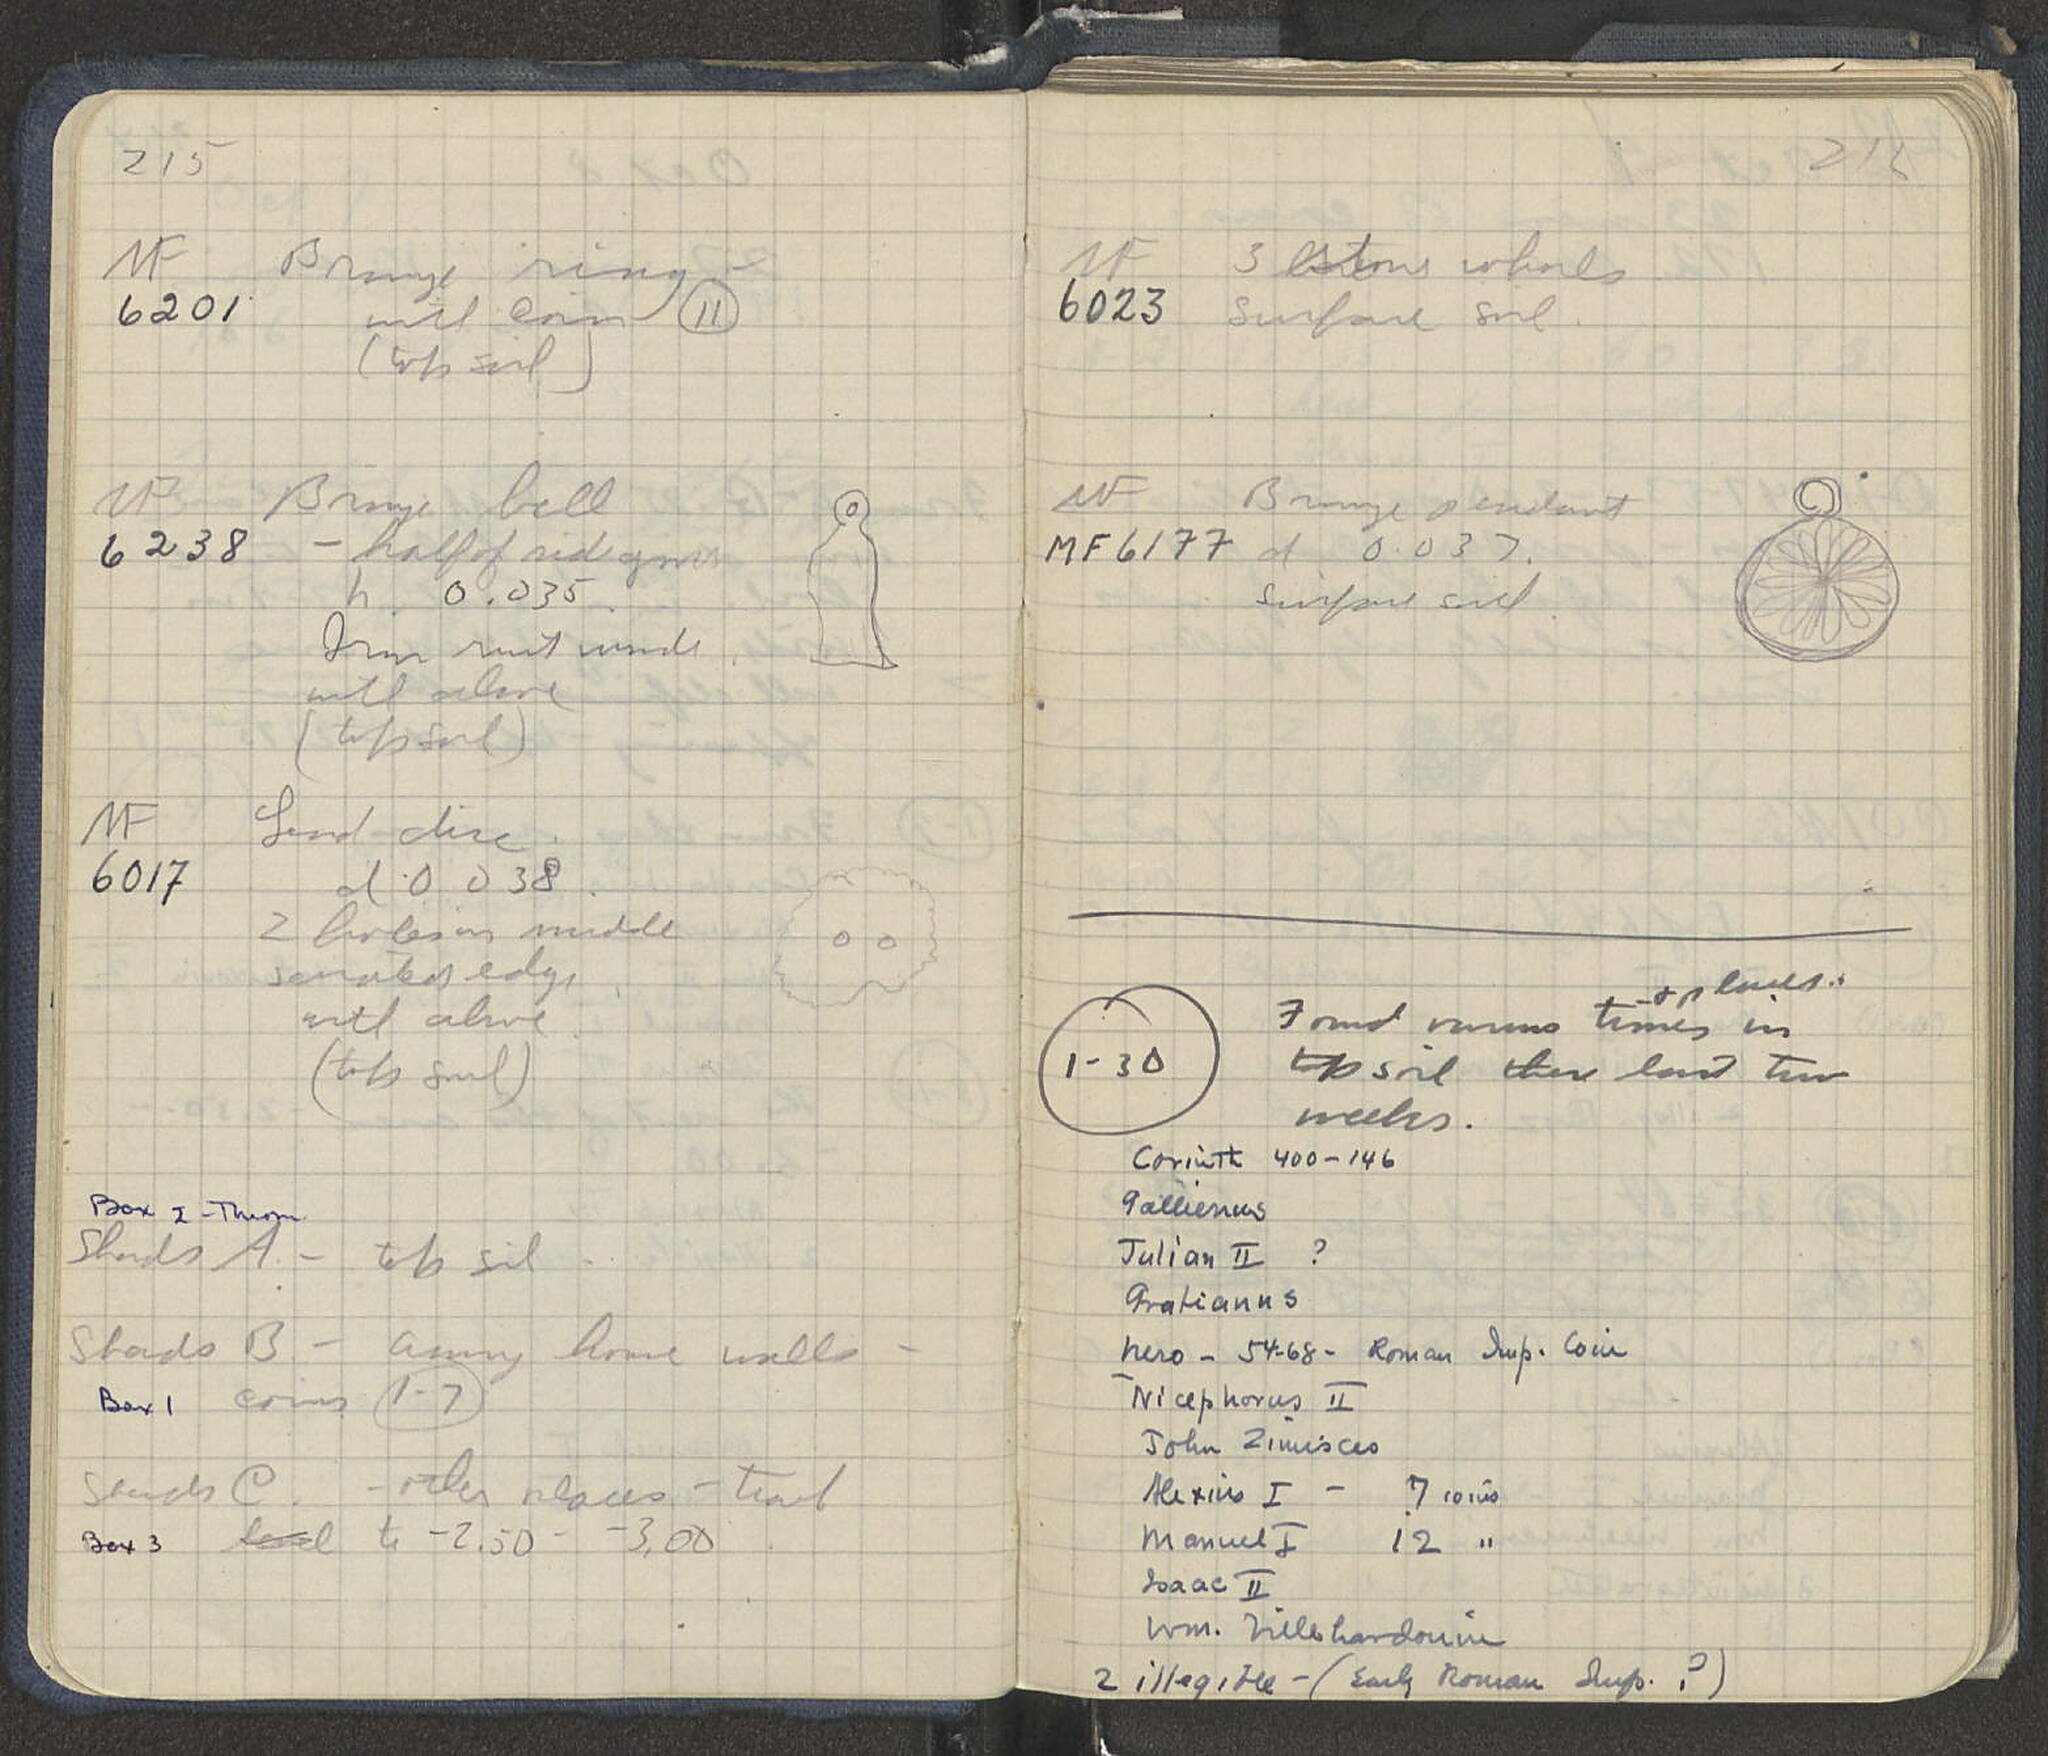 215
MF Bronze ring -
6201 with coin (11)
(top soil)
MF Bronze bell
6238 - half of side gone
h. 0.035.
Iron rust inside.
with above
(top soil)
MF Lead disc.
6017 d. 0.038.
2 holes in middle
serrated edge,
with above.
(top soil)
Box 2 -
Sherds A. - top soil -
Sherds B. - among house walls -
Box 1 coins (1-7)
Sherds C. - other places -
Box 3 to -2.50 - -3.00
216
MF 3 stone whorls
6023 Surface soil.
MF Bronze pendant
MF 6177 d 0.037.
Surface soil.
& places.
1-30 Found various times in
top soil these last two
weeks.
Corinth 400-146
Gallienus
Julian II ?
Gratianus
Nero - 54-68 - Roman Imp. Coin
Nicephorus II
John Zimisces
Alexius I - 7 coins
Manuel I 12 "
Isaac II
Wm. Villehardouin
2 illegible - (Early Roman Imp. ?)